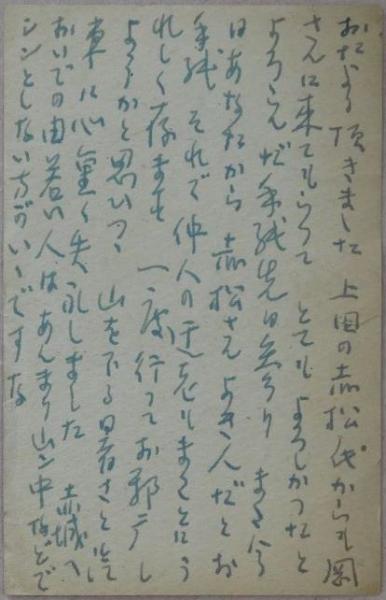 おたより頂きました 上田の赤松氏からも岡
さんに来てもらって とてもよろしかったと
よろこんだ手紙先日参り また今
日あなたから 赤松さんよき人だとお
手紙 それで仲人の 私もまことにう
れしく存ます 一度行ってお邪テし
ようかと思ひつゝ 山を下る日暑さと汽
車に心重く失礼しました 赤城へ
おいでの由若い人はあんまり山ン中などで
シンとしない方がいゝですな